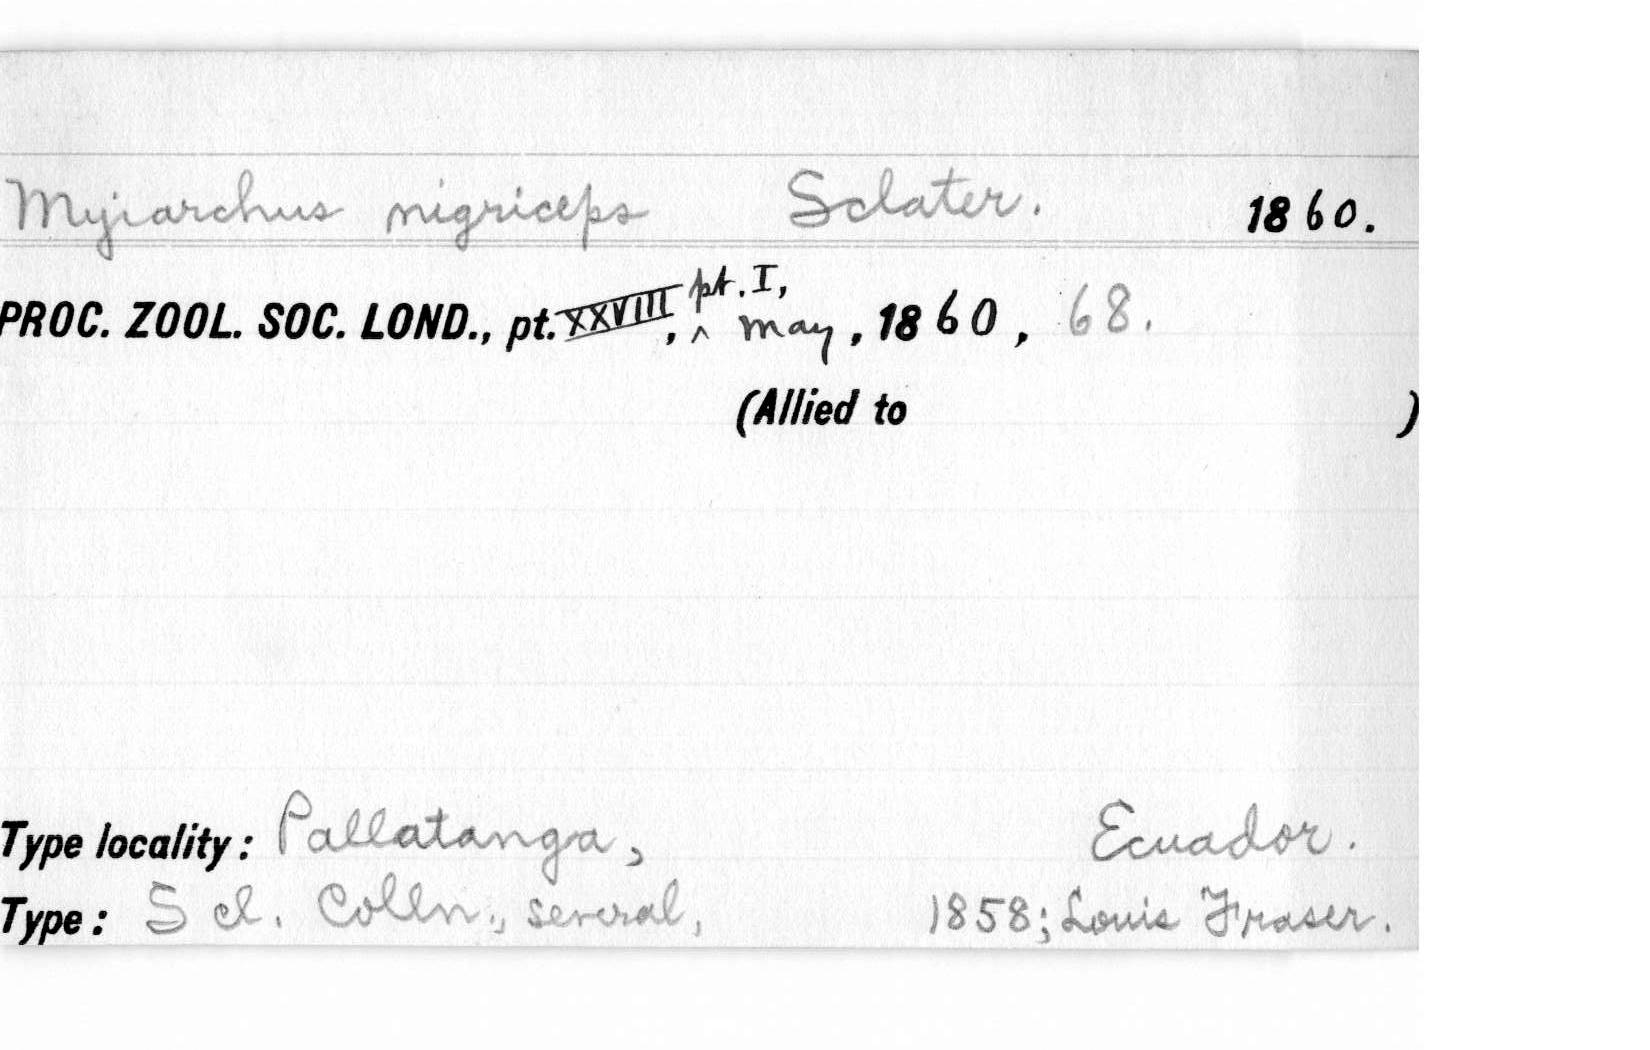 Myiarchus nigriceps Sclater. 1860.
PROC. ZOOL. SOC. LOND., pt. XXVIII, ^ pt. I, May, 1860, 68.
(Allied to )
Type locality: Pallatanga, Ecuador.
Type: Scl. Colln., several, 1858; Louis Fraser.